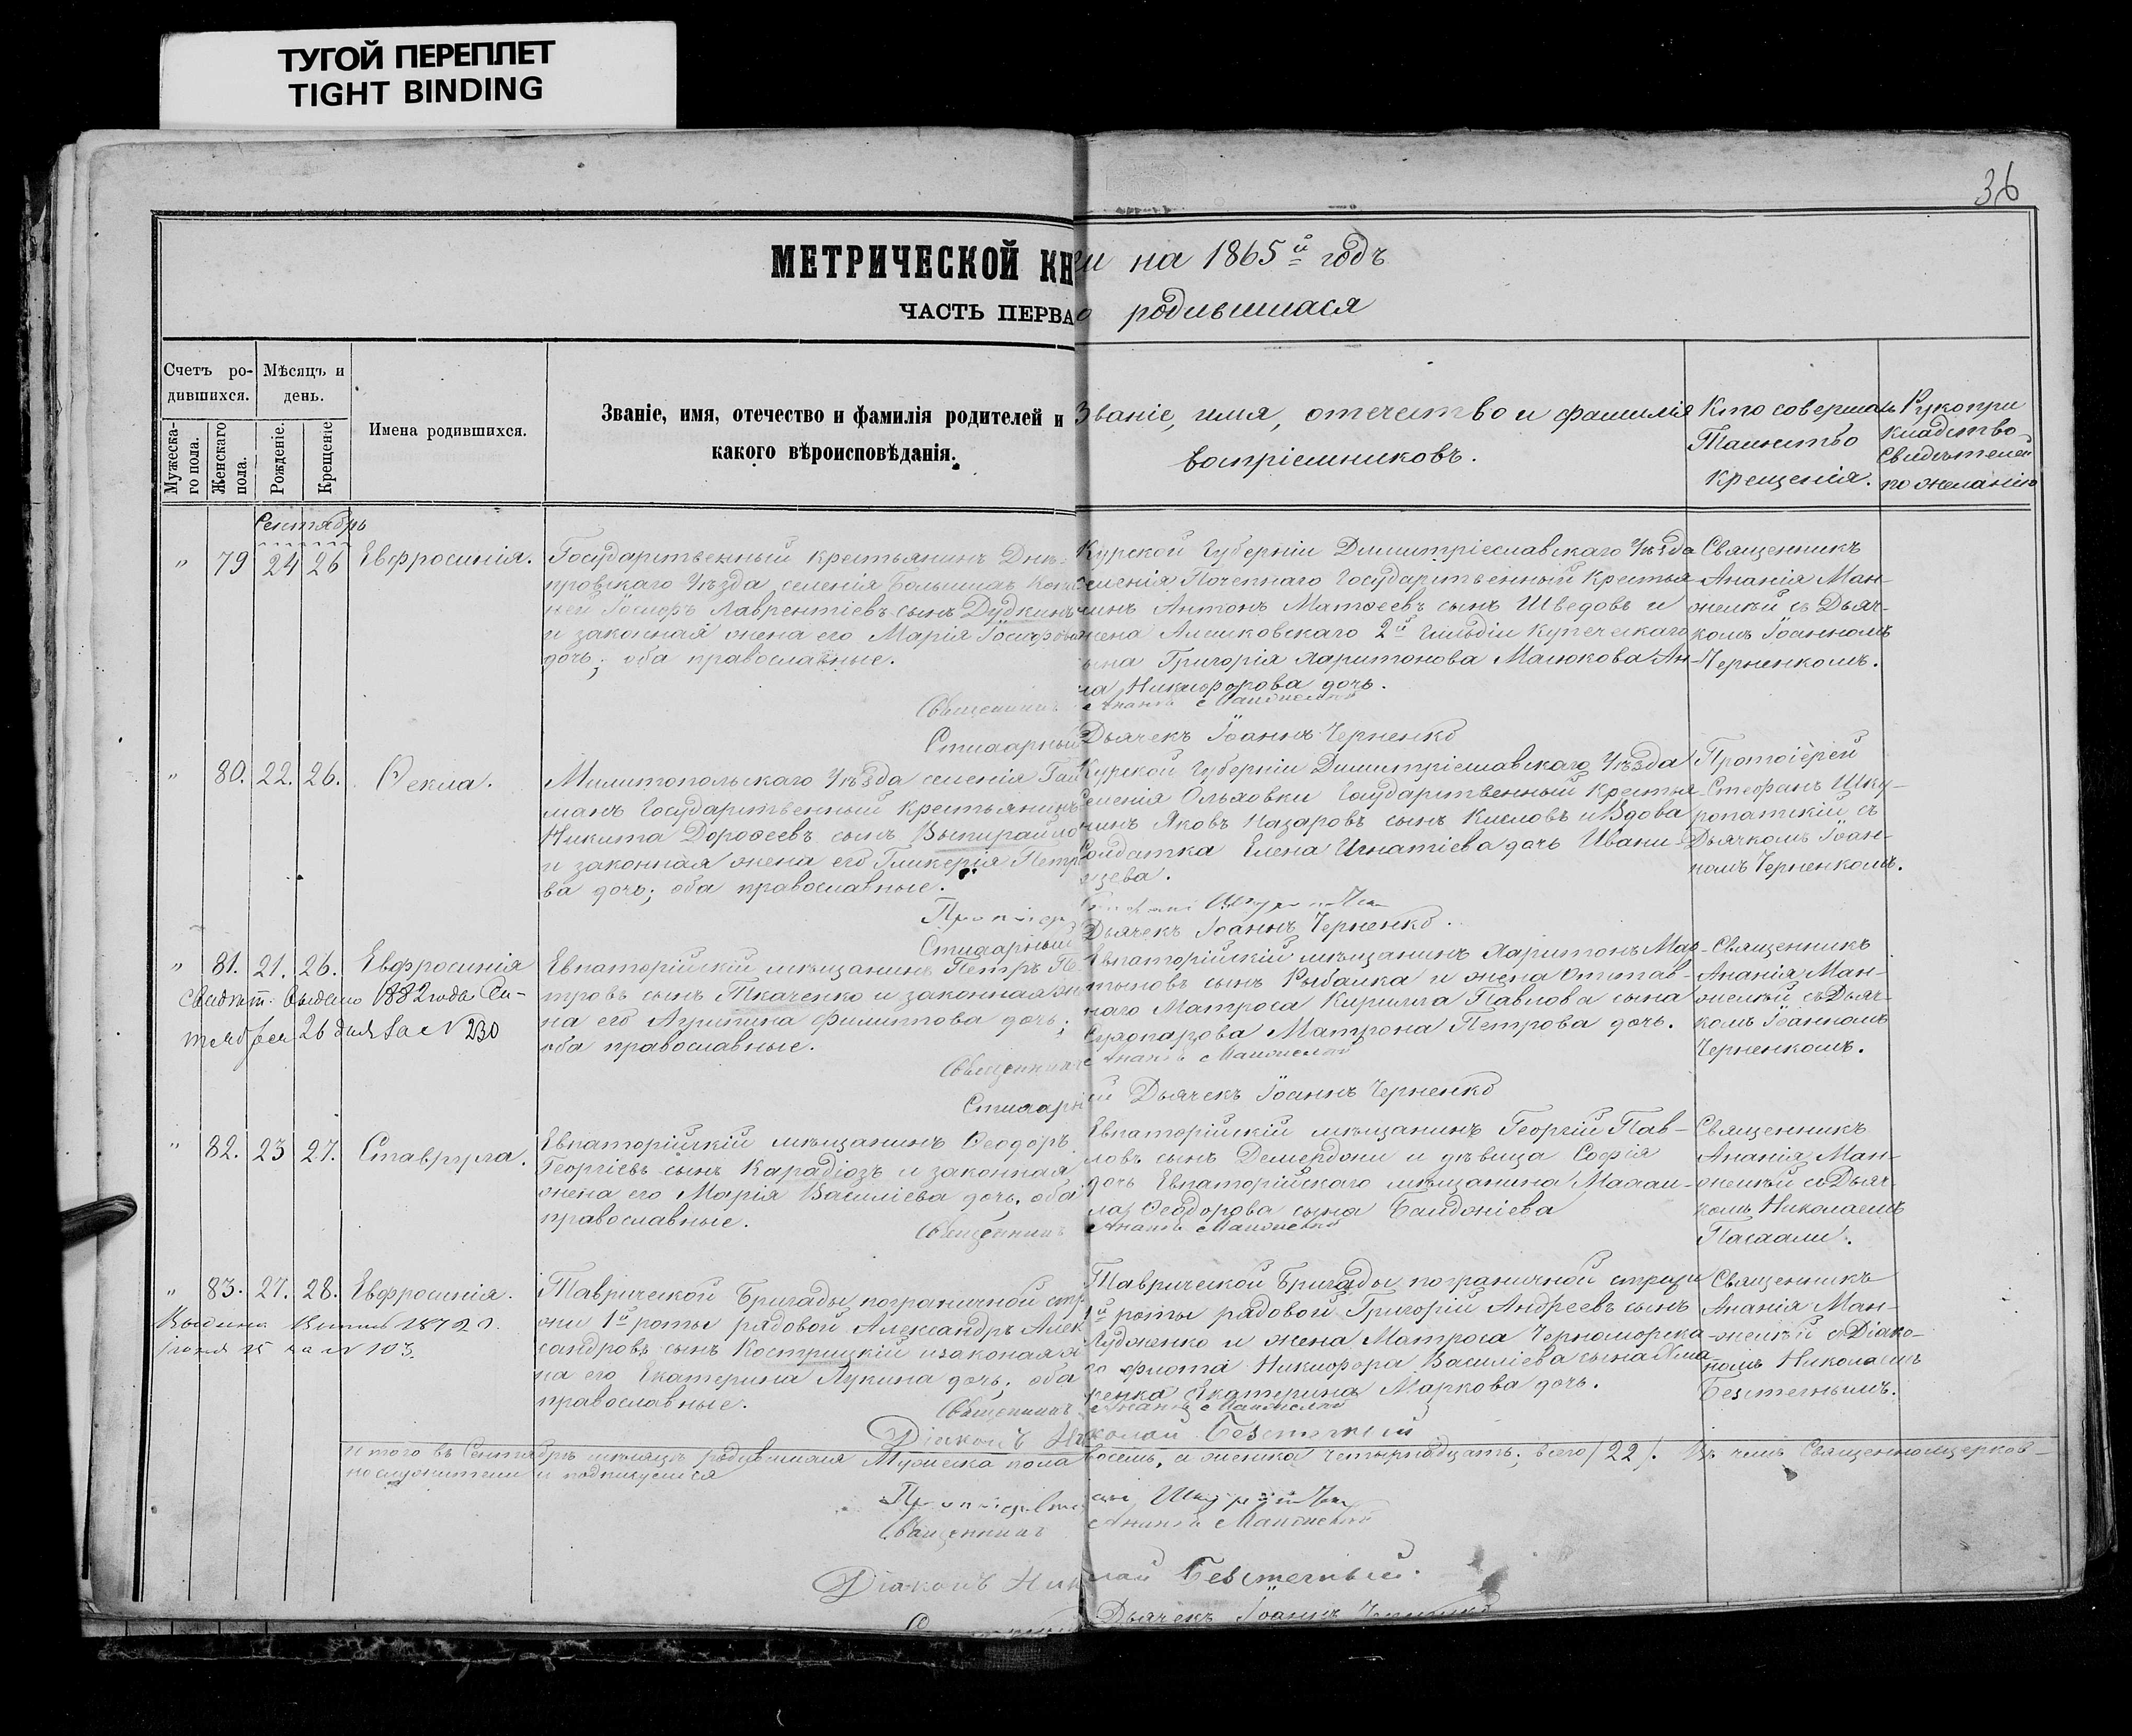 ТУГОЙ ПЕРЕПЛЕТ
TIGHT BINDING
36
МЕТРИЧЕСКОЙ КНги на 1865й годъ
ЧАСТЬ ПЕРВАо родившихся
Счетъ ро-
дившихся.
Мужеска-
го пола.
Женскаго
пола.
Мѣсяцъ и
день.
Рожденіе.
Крещеніе
Имена родившихся.
Званіе, имя, отечество и фамилія родителей и
какого вѣроисповѣданія.
Званіе, имя, отечество и фамилія
воспріемниковъ.
Кто совершалъ
Таинство
крещенія.
Рукопри
кладство
Свидѣтелей
по желанію
Сентябрь
" 79 24 26 Евфросинія.
Государственный крестьянинъ Днѣ-
провскаго Уѣзда селенія Большихъ Коп
ней Іосифъ Лаврентіевъ сынъ Дудкинъ
и законная жена его Марія Іосифова
дочь; оба православные.
Священникъ
Стихарный
Курской Губерніи Димитріеславскаго Уѣзда
селенія Почепнаго Государственный Крестья
нинъ Антонъ Матѳеевъ сынъ Шведовъ и
жена Алешковскаго 2й гильдіи купеческаго
сына Григорія Харитонова Малюкова Ан-
на Никифорова дочь.
Ананія Манжелей
Дьячекъ Іоаннъ Черненко
Священникъ
Ананія Ман-
желей съ Дьяч-
комъ Іоанномъ
Черненкомъ.
" 80. 22. 26. Ѳекла.
Мелитопольскаго Уѣзда селенія Гай
манъ Государственный Крестьянинъ
Никита Дороѳеевъ сынъ Выпирайло
и законная жена его Гликерія Петро
ва дочь; оба православные.
Протоіер
Стихарный
Курской Губерніи Димитріеславскаго Уѣзда
селенія Ольховки Государственный Крестья
нинъ Яковъ Назаровъ сынъ Кисловъ и Вдова
Солдатка Елена Игнатіева дочь Ивани-
щева.
Дьячекъ Іоаннъ Черненко.
Протоіерей
Стефанъ Шку-
ропатскій съ
Дьячкомъ Іоан-
номъ Черненкомъ.
" 81. 21. 26. Евфросинія
Свидѣт. выдано 1882 года Сен-
тября 26 дня за № 230
Евпаторійскій мѣщанинъ Петръ Пе
тровъ сынъ Ткаченко и законная же
на его Агрипина Филиппова дочь;
оба православные.
Священникъ
Стихарн
Евпаторійскій мѣщанинъ Харитонъ Мар
тыновъ сынъ Рыбалка и жена Отстав-
наго Матроса Кирилла Павлова сына
Сухопарова Матрона Петрова дочь.
Ананія Манжелей
ый Дьячекъ Іоаннъ Черненко
Священникъ
Ананія Ман-
желей съ Дьяч-
комъ Іоанномъ
Черненкомъ.
" 82. 23 27. Ставрула.
Евпаторійскій мѣщанинъ Ѳеодоръ
Георгіевъ сынъ Карадіозъ и законная
жена его Марія Василіева дочь, оба
православные.
Священникъ
Евпаторійскій мѣщанинъ Георгій Пав-
ловъ сынъ Демерджи и дѣвица Софія
дочь Евпаторійскаго мѣщанина Михаи-
ла Ѳеодорова сына
Ананія Манжелей
Священникъ
Ананія Ман-
желей съ Дьяч-
комъ Николаемъ
Пасхали.
" 83. 27. 28. Евфросинія.
Выдана 1872 г.
Іюня 15 за № 103.
Таврической Бригады пограничной стр
жи 1й роты рядовой Александръ Алек
сандровъ сынъ Кострицкій и законая же
на его Екатерина Лукина дочь, оба
православные.
Священникъ
Діаконъ Ни
Таврической Бригады пограничной стражи
1й роты рядовой Григорій Андреевъ сынъ
и жена Матроса Черноморска
го флота Никифора Василіева сына
ренка Екатерина Маркова дочь.
Ананія Манжелей
колай Безстечный
Священникъ
Ананія Ман-
желей съ Діако-
номъ Николаемъ
Безстечнымъ.
Итого въ Сентябрѣ мѣсяцѣ родившихся Мужеска пола восемь, а женска четырнадцать; всего (22). Въ чемъ Священноцерков-
нослужители и подписуемся
Протоіерей
Священникъ Ананія Манжелей
Діаконъ Николай Безстечный.
Дьячекъ Іоаннъ Черненко